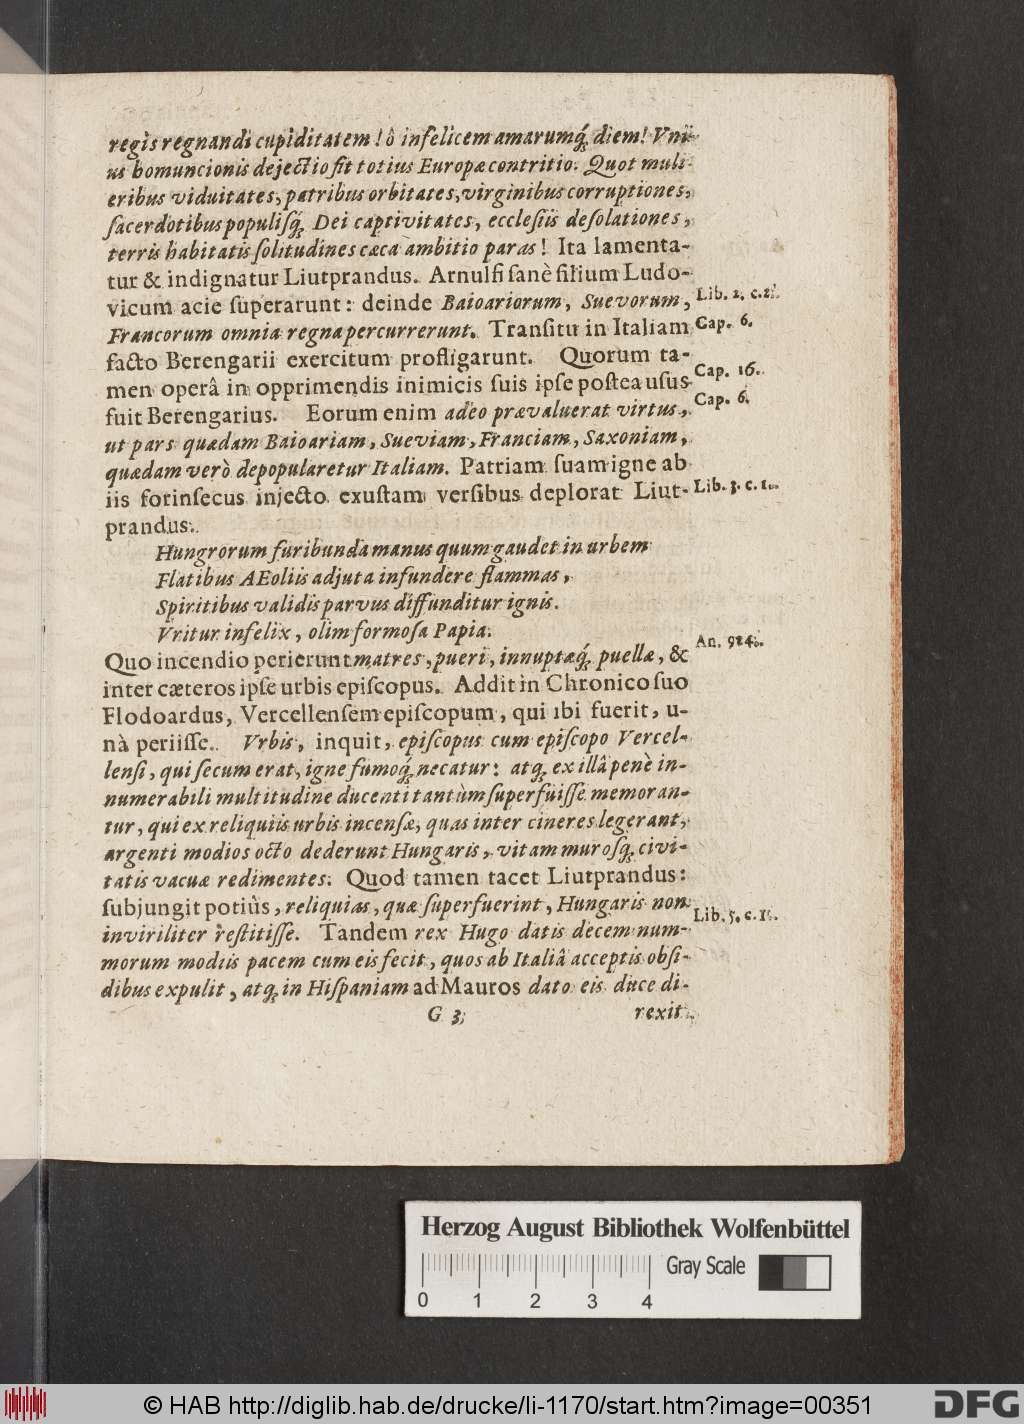 regis regnandi cupiditatem! ô infelicem amarumq́; diem! Vnii-
us homuncionis dejectio fit totius Europæ contritio. Quot muli-
eribus viduitates, patribus orbitates, virginibus corruptiones,
ſacerdotibus populiſq́; Dei captivitates, eccleſiis deſolationes,
terris habitatis ſolitudines cæca ambitio paras! Ita lamenta-
tur & indignatur Liutprandus. Arnulfi ſanè filium Ludo-
vicum acie ſuperarunt: deinde Baioariorum, Suevorum,
Lib. 2. c. 2.
Francorum omnia regna percurrerunt. Tranſitu in Italiam
Cap. 6.
facto Berengarii exercitum profligarunt. Quorum ta-
men operâ in opprimendis inimicis ſuis ipſe poſtea uſus
Cap. 16.
fuit Berengarius. Eorum enim adeo prævaluerat virtus,
Cap. 6.
ut pars quædam Baioariam, Sueviam, Franciam, Saxoniam,
quædam verò depopularetur Italiam. Patriam ſuam igne ab
iis forinſecus injecto exuſtam verſibus deplorat Liut-
Lib. 3. c. 1.
prandus.
Hungrorum furibunda manus quum gaudet in urbem
Flatibus AEoliis adjuta infundere flammas,
Spiritibus validis parvus diffunditur ignis.
Vritur infelix, olim formoſa Papia.
Quo incendio perierunt matres, pueri, innuptæq́; puellæ, &
An. 924.
inter cæteros ipſe urbis epiſcopus. Addit in Chronico ſuo
Flodoardus, Vercellenſem epiſcopum, qui ibi fuerit, u-
nà periiſſe. Vrbis, inquit, epiſcopus cum epiſcopo Vercel-
lenſi, qui ſecum erat, igne fumoq́; necatur: atq; ex illâ penè in-
numerabili multitudine ducenti tantùm ſuperfuiſſe memoran-
tur, qui ex reliquiis urbis incenſæ, quas inter cineres legerant,
argenti modios octo dederunt Hungaris, vitam muroſq; civi-
tatis vacuæ redimentes. Quod tamen tacet Liutprandus:
ſubjungit potiùs, reliquias, quæ ſuperfuerint, Hungaris non
Lib. 5. c. 1.
inviriliter reſtitiſſe. Tandem rex Hugo datis decem num-
morum modiis pacem cum eis fecit, quos ab Italiâ acceptis obſi-
dibus expulit, atq; in Hiſpaniam ad Mauros dato eis duce di-
G 3
rexit
Herzog August Bibliothek Wolfenbüttel
0 1 2 3 4
Gray Scale
© HAB http://diglib.hab.de/drucke/li-1170/start.htm?image=00351
DFG